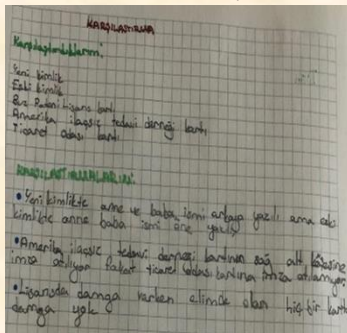 KARŞILAŞTIRMA
Karşılaştırdıklarım:
Yeni kimlik
Eski kimlik
Buz Pateni Lisans kartı
Amerika ilaçsız tedavi derneği kartı
Ticaret odası kartı
KARŞILAŞTIRMALARIM:
• Yeni kimlikte anne ve baba ismi arkaya yazılı ama eski
kimlikte anne baba ismi öne yazılı
• Amerika ilaçsız tedavi derneği kartının sağ alt köşesine
imza atılıyor fakat ticaret odası kartına imza atılamıyor.
• Lisansda damga varken elimde olan hiç bir kartta
damga yok